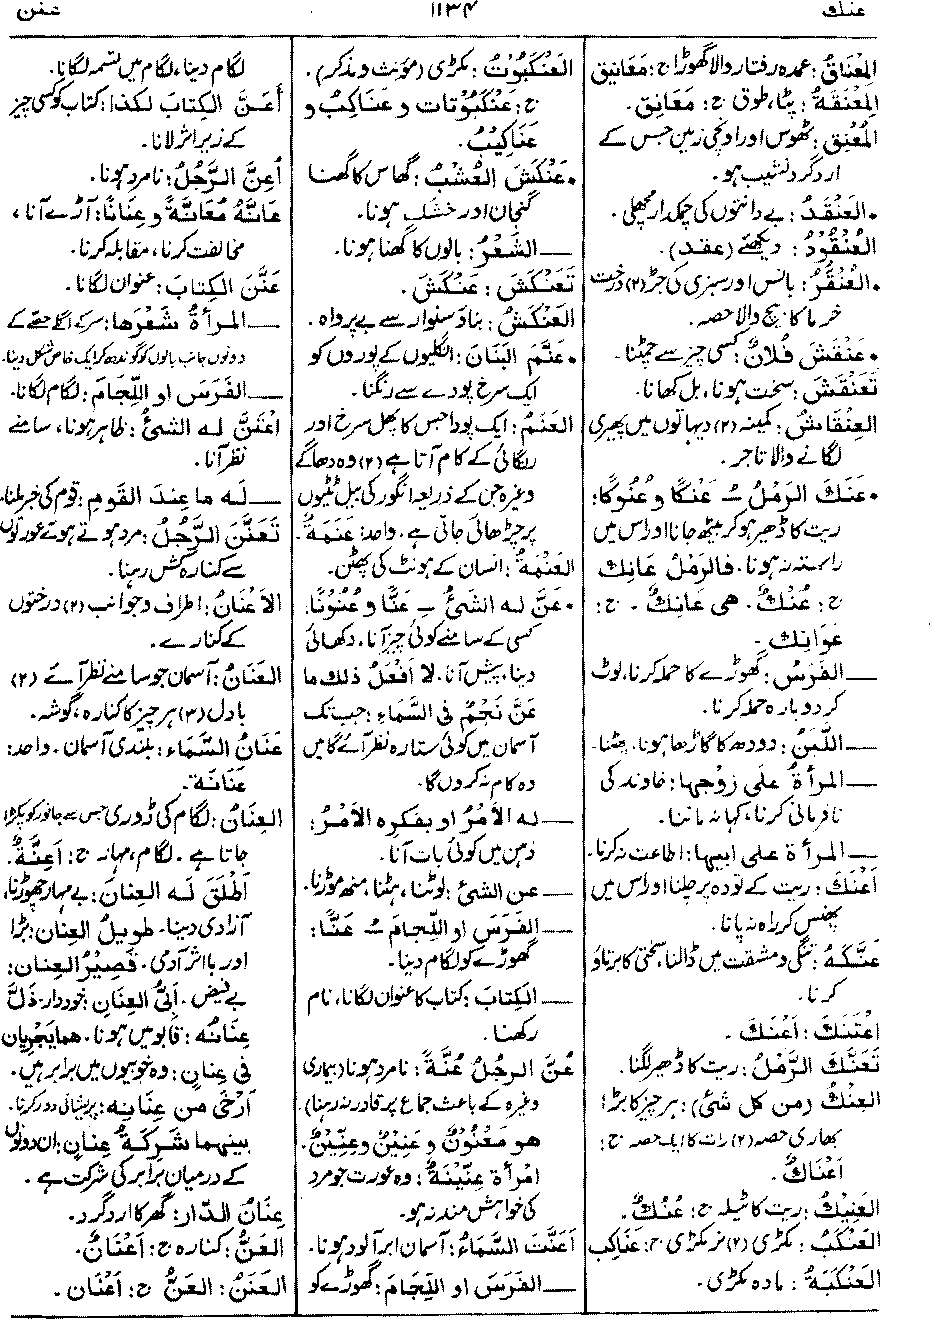 عنك
۱۱۳۴
عنن
المِعْنَاقُ: عمدہ رفتار والا گھوڑا ج: مَعَانِيق
المِعْنَقَةُ: پٹا، طوق ج: مَعَانِق.
المُعْنِق: ٹھوس اور اونچی زمین جس کے
ارد گرد نشیب ہو.
•العَنْقَدُ: بے دانتوں کی چمکدار مچھلی.
العُنْقُوْدُ: دیکھئے (عقد).
•العُنْقُرُ: بانس اور سبزی کی جڑ (۲) درخت
خرما کا بیچ والا حصہ.
•عَنْقَشَ فُلانٌ: کسی چیز سے چمٹنا.
تَعَنْقَشَ: سخت ہونا، بل کھانا.
العِنْقَاشُ: کمینہ (۲) دیہاتوں میں پھیری
لگانے والا تاجر.
•عَنَكَ الرَمْلُ ـُ عَنْكًا وعُنُوكًا:
ریت کا ڈھیر ہو کر بیٹھ جانا اور اس میں
راستہ نہ ہونا. فالرَمْلُ عَانِك
ج: عُنُكٌ. هی عَانِكٌ. ج:
عَوَانِك.
— الفَرَسُ: گھوڑے کا حملہ کرنا، لوٹ
کر دوبارہ حملہ کرنا.
— اللَّبَنُ: دودھ کا گاڑھا ہونا، پھٹنا.
— المرأةُ علی زوجها: خاوند کی
نافرمانی کرنا، کہا نہ ماننا.
— المرأة علی ابیها: اطاعت نہ کرنا.
أعْنَكَ: ریت کے تودہ پر چلنا اور اس میں
پھنس کر راہ نہ پانا.
عَنَّكَهُ: تنگی و مشقت میں ڈالنا، سختی کا برتاؤ
کرنا.
اعْتَنَكَ: أعْنَكَ.
تَعَنَّكَ الرَّمْلُ: ریت کا ڈھیر لگنا.
العِنْكُ (من کل شئ): ہر چیز کا بڑا؛
بھاری حصہ (۲) رات کا ایک حصہ ج:
أعْنَاكٌ.
العَنِيْكُ: ریت کا ٹیلہ ج: عُنُكٌ.
العَنْكَبُ: مکڑی (۲) نر مکڑی ج: عَنَاكِب
العَنْكَبَةُ: مادہ مکڑی.
العَنْكَبُوْتُ: مکڑی (مؤنث و مذکر).
ج: عَنْكَبُوْتَات و عَنَاكِبُ و
عَنَاكِيْبُ.
•عَنْكَشَ العُشْبُ: گھاس کا گھنا
گنجان اور خشک ہونا.
— الشَعْرُ: بالوں کا گھنا ہونا.
تَعَنْكَشَ: عَنْكَشَ.
العَنْكَشُ: بناؤ سنوار سے بے پرواہ.
•عَنَّمَ البَنَانَ: انگلیوں کے پوروں کو
ایک سرخ پودے سے رنگنا.
العَنَمُ: ایک پودا جس کا پھل سرخ اور
رنگائی کے کام آتا ہے (۲) وہ دھاگے
وغیرہ جن کے ذریعہ انگور کی بیل ٹٹیوں
پر چڑھائی جاتی ہے. واحد: عَنَمَةٌ.
العَنَمَةُ: انسان کے ہونٹ کی پھٹن.
•عَنَّ له الشئُ ـِ عَنًّا وعُنُوْنًا:
کسی کے سامنے کوئی چیز آنا، دکھائی
دینا، پیش آنا. لا أفْعَلُ ذلك ما
عَنَّ نَجْمٌ فی السَّمَاءِ: جب تک
آسمان میں کوئی ستارہ نظر آئے گا میں
وہ کام نہ کروں گا.
— له الأمْرُ او بفکره الأمْرُ:
ذہن میں کوئی بات آنا.
— عن الشئ: لوٹنا، ہٹنا، منھ موڑنا.
— الفَرَسَ او اللِّجامَ ـُ عَنًّا:
گھوڑے کو لگام دینا.
— الكِتابَ: کتاب کا عنوان لگانا، نام
رکھنا.
عُنَّ الرجلُ عُنَّةً: نامرد ہونا (بیماری
وغیرہ کے باعث جماع پر قادر نہ رہنا).
هو مَعْنُوْنٌ و عَنِيْنٌ وعِنِّيْنٌ.
امْرأة عِنِّيْنَةٌ: وہ عورت جو مرد
کی خواہش مند نہ ہو.
أعَنَّتِ السَّمَاءُ: آسمان ابر آلود ہونا.
— الفَرَسَ او اللِّجامَ: گھوڑے کو
لگام دینا، لگام میں تسمہ لگانا.
أعَنَّ الكِتابَ لكذا: کتاب کو کسی چیز
کے زیر اثر لانا.
أُعِنَّ الرَّجُلُ: نامرد ہونا.
عَانَّهُ مُعَانَّةً و عِنَانًا: آڑے آنا،
مخالفت کرنا، مقابلہ کرنا.
عَنَّنَ الكِتابَ: عنوان لگانا.
— المرأةُ شَعْرَها: سر کے اگلے حصے کے
دونوں جانب بالوں کو گوندھ کر ایک خاص شکل دینا.
— الفَرَسَ او اللِّجَامَ: لگام لگانا.
اعْتَنَّ له الشئُ: ظاہر ہونا، سامنے
نظر آنا.
— لَه ما عِندَ القَومِ: قوم کی خبر ملنا.
تَعَنَّنَ الرَّجُلُ: مرد ہوتے ہوئے عورتوں
سے کنارہ کش رہنا.
الأعْنَانُ: اطراف و جوانب (۲) درختوں
کے کنارے.
العَنَانُ: آسمان جو سامنے نظر آئے (۲)
بادل (۳) ہر چیز کا کنارہ، گوشہ.
عَنَانُ السَّمَاءِ: بلندی آسمان. واحد:
عَنَانَة.
العِنَانُ: لگام کی ڈوری جس سے جانور کو پکڑا
جاتا ہے. لگام، مہار ج: أعِنَّةٌ.
أطْلَقَ لَه العِنَانَ: بے مہار چھوڑنا،
آزادی دینا. طویلُ العِنان: بڑا
اور بااثر آدمی. قَصِيْرُ العِنان:
بے فیض. أبِيُّ العِنَانِ: خود دار. ذَلَّ
عِنَانُه: قابو میں ہونا. هما يَجْرِيان
فی عِنانٍ: وہ خوبیوں میں برابر ہیں.
أرْخَى من عِنَانِه: پریشانی دور کرنا.
بينهما شَرِكَةُ عِنانٍ: ان دونوں
کے درمیان برابر کی شرکت ہے.
عِنانُ الدَّار: گھر کا ارد گرد.
العَنُّ: کنارہ ج: أعْنَانٌ.
العَنَنُ: العَنُّ ج: أعْنَان.